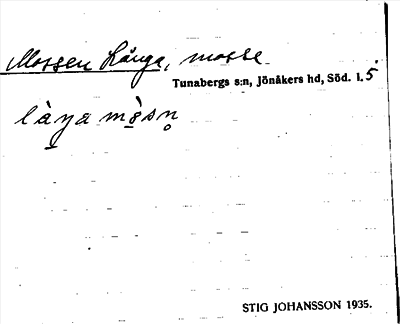 Mossen Långa, mosse
Tunabergs s:n, Jönåkers hd, Söd. l. 5
là̱ŋa mò̱sn̥
STIG JOHANSSON 1935.